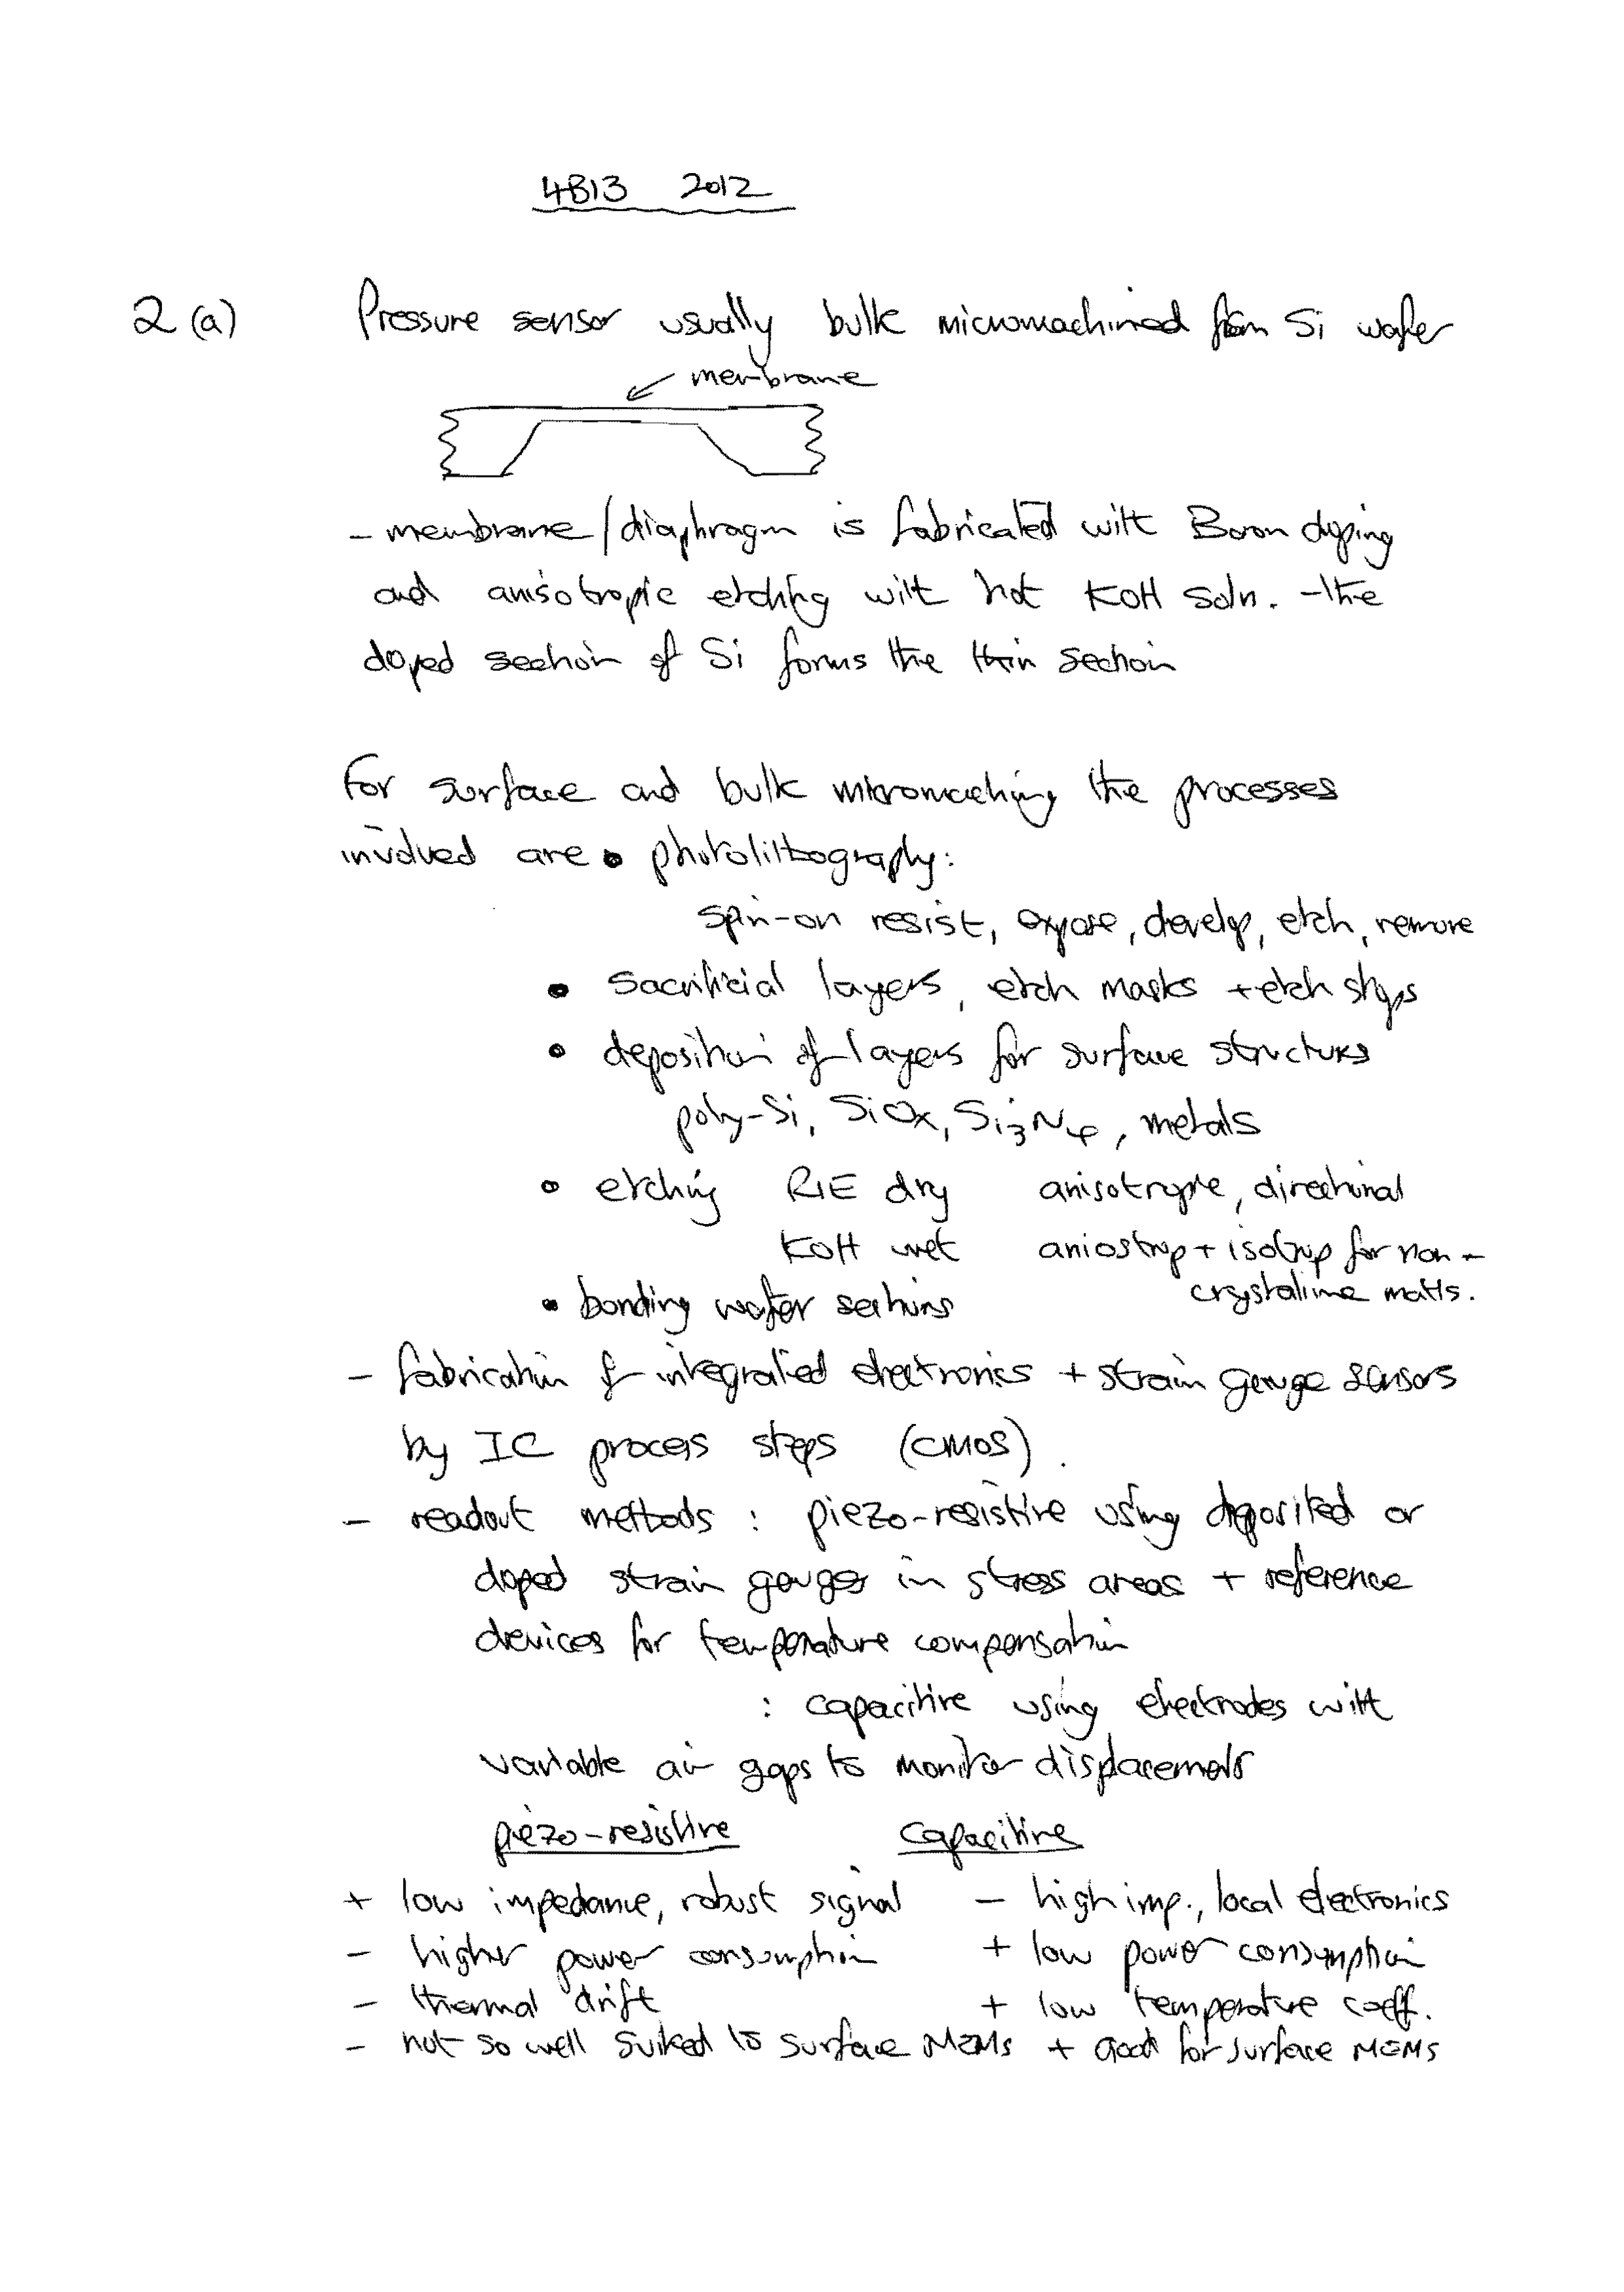 4B13 2012
2 (a) Pressure sensor usually bulk micromachined from Si wafer
membrane
- membrane/diaphragm is fabricated with Boron doping
and anisotropic etching with hot KOH soln. - the
doped section of Si forms the thin section
For surface and bulk micromaching the processes
involved are • photolithography:
spin-on resist, expose, develop, etch, remove
• sacrificial layers, etch masks + etch stops
• deposition of layers for surface structures
poly-Si, SiOx, Si3N4, metals
• etching RIE dry anisotropic, directional
KOH wet aniostrop + isotrop for non-
crystalline matls.
• bonding wafer sections
- fabrication of integrated electronics + strain gauge sensors
by IC process steps (CMOS).
- readout methods : piezo-resistive using deposited or
doped strain gauges in stress areas + reference
devices for temperature compensation
: capacitive using electrodes with
variable air gaps to monitor displacements
piezo-resistive capacitive
+ low impedance, robust signal - high imp., local electronics
- higher power consumption + low power consumption
- thermal drift + low temperature coeff.
- not so well suited to surface MEMs + Good for surface MEMS